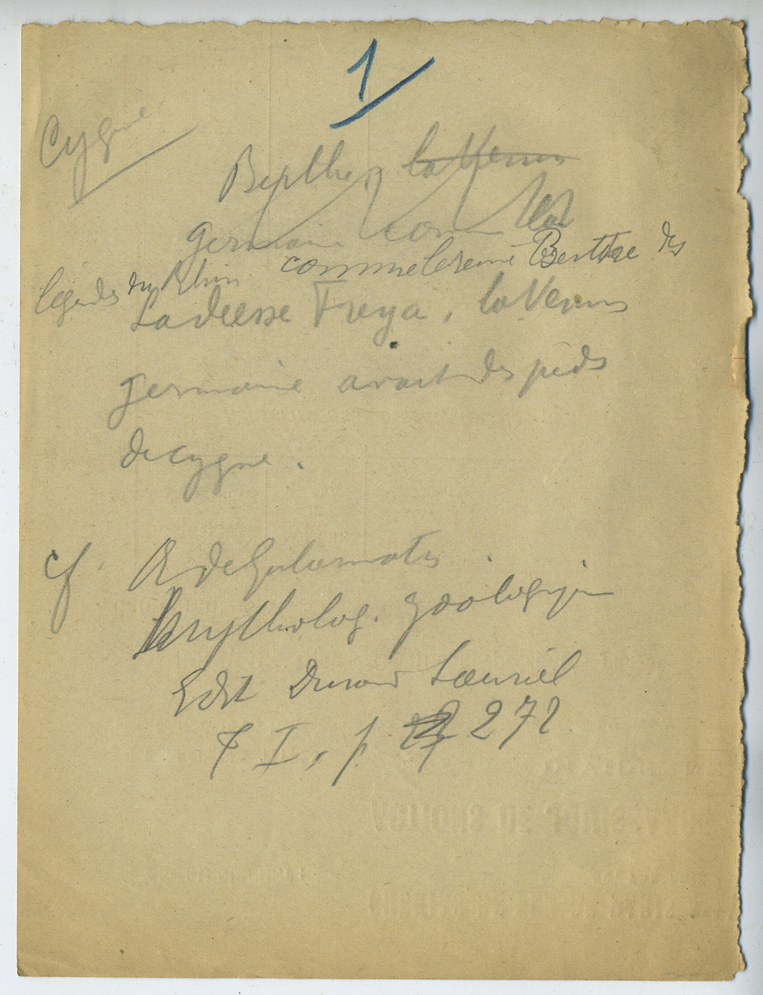 1
Cygne
Berthe, la Venus
germaine comme
comme la reine Berthe des
légendes du Rhin
La déesse Freya, la Venus
germaine avait des pieds
de cygne.
cf. A de Gubernatis
Mytholog. zoologique
Edit Durand Lauriel
T. I, p. 272